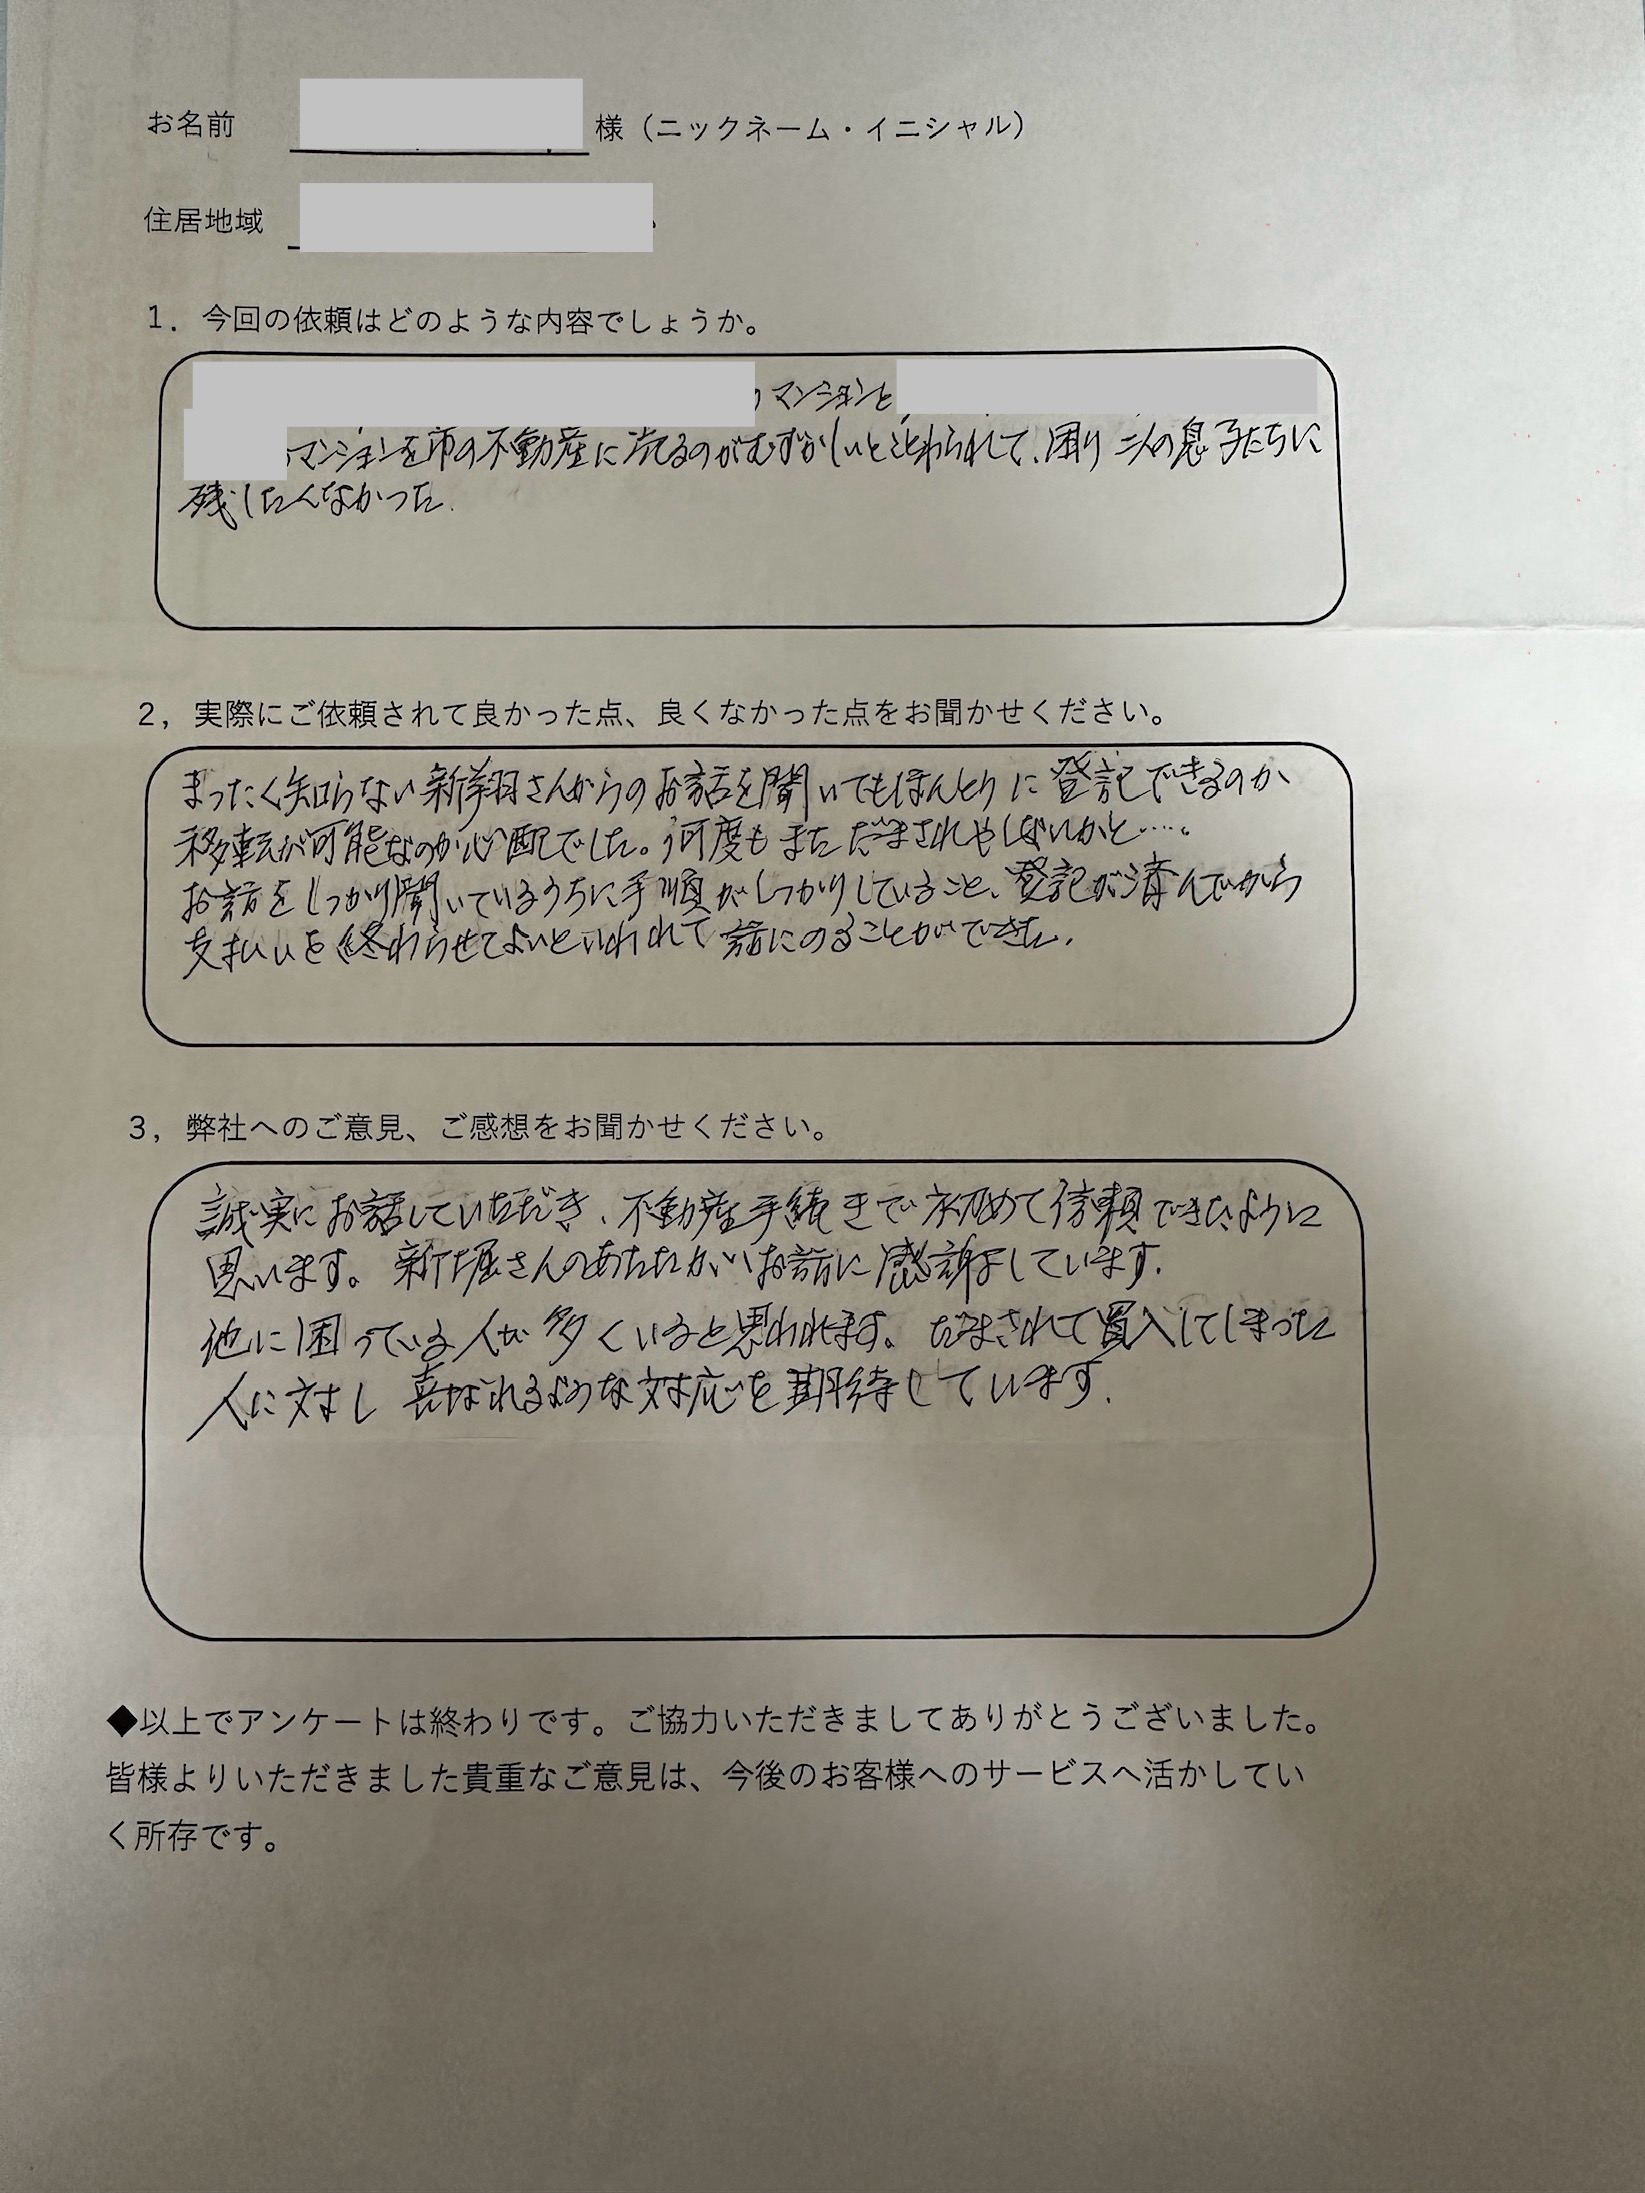 お名前 様（ニックネーム・イニシャル）
住居地域
1．今回の依頼はどのような内容でしょうか。
マンションと
マンションを市の不動産に売るのがむずかしいとことわられて、困り二人の息子たちに
残したくなかった.
2，実際にご依頼されて良かった点、良くなかった点をお聞かせください。
まったく知らない新翔さんからのお話を聞いてもほんとりに登記できるのか
移転が可能なのか心配でした。何度もまただまされやしないかと……。
お話をしっかり聞いているうちに手順がしっかりしていること、登記が済んでから
支払いを終わらせてよいといわれて話にのることができた.
3，弊社へのご意見、ご感想をお聞かせください。
誠実にお話していただき、不動産手続きで初めて信頼できたように
思います。新堀さんのあたたかいお話に感謝しています.
他に困っている人が多くいると思われます。だまされて買入してしまった
人に対し喜ばれるような対応を期待しています.
◆以上でアンケートは終わりです。ご協力いただきましてありがとうございました。
皆様よりいただきました貴重なご意見は、今後のお客様へのサービスへ活かしてい
く所存です。